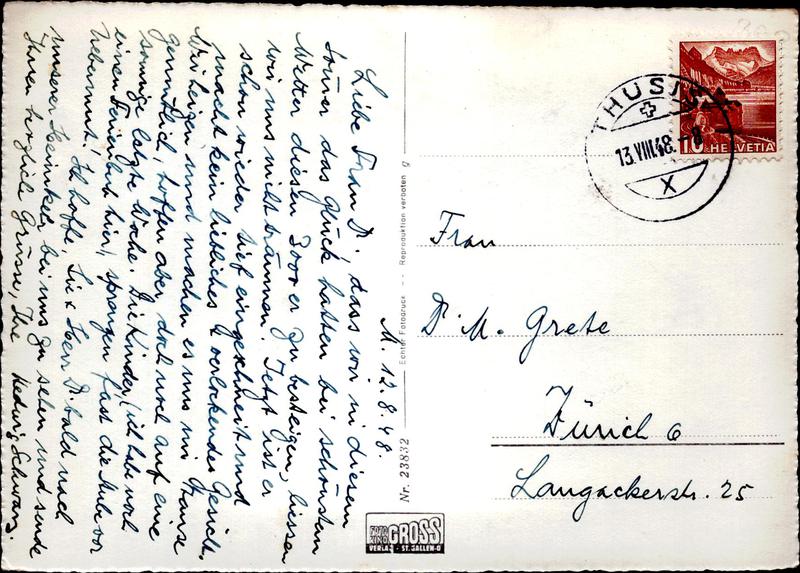 M. 12.8.48.
Liebe Frau Dr., dass wir in diesem
Sommer das Glück hatten bei schönstem
Wetter diesen 3000er zu besteigen, liessen
wir uns nicht träumen. Jetzt ist er
schon wieder tief eingeschneit und
macht kein liebliches & verlockendes Gesicht.
Wir heizen und machen es uns im Hause
gemütlich, hoffen aber doch noch auf eine
sonnige letzte Woche. Die Kinder, (ich habe noch
einen Ferienbub hier) sprengen fast die Bude vor
Uebermut! Ich hoffe, Sie & Herr Dr. bald nach
unserer Heimkehr bei uns zu sehen und sende
Ihnen herzliche Grüsse, Ihre Hedwig Schwarz.
Nr. 23832 Echter Fotodruck -- Reproduktion verboten g
FOTO KINO GROSS
VERLAG - ST. GALLEN-O
THUSIS
13.VIII.48.-8
X
10 HELVETIA
Frau
Dr M. Grete
Zürich 6
Langackerstr. 25